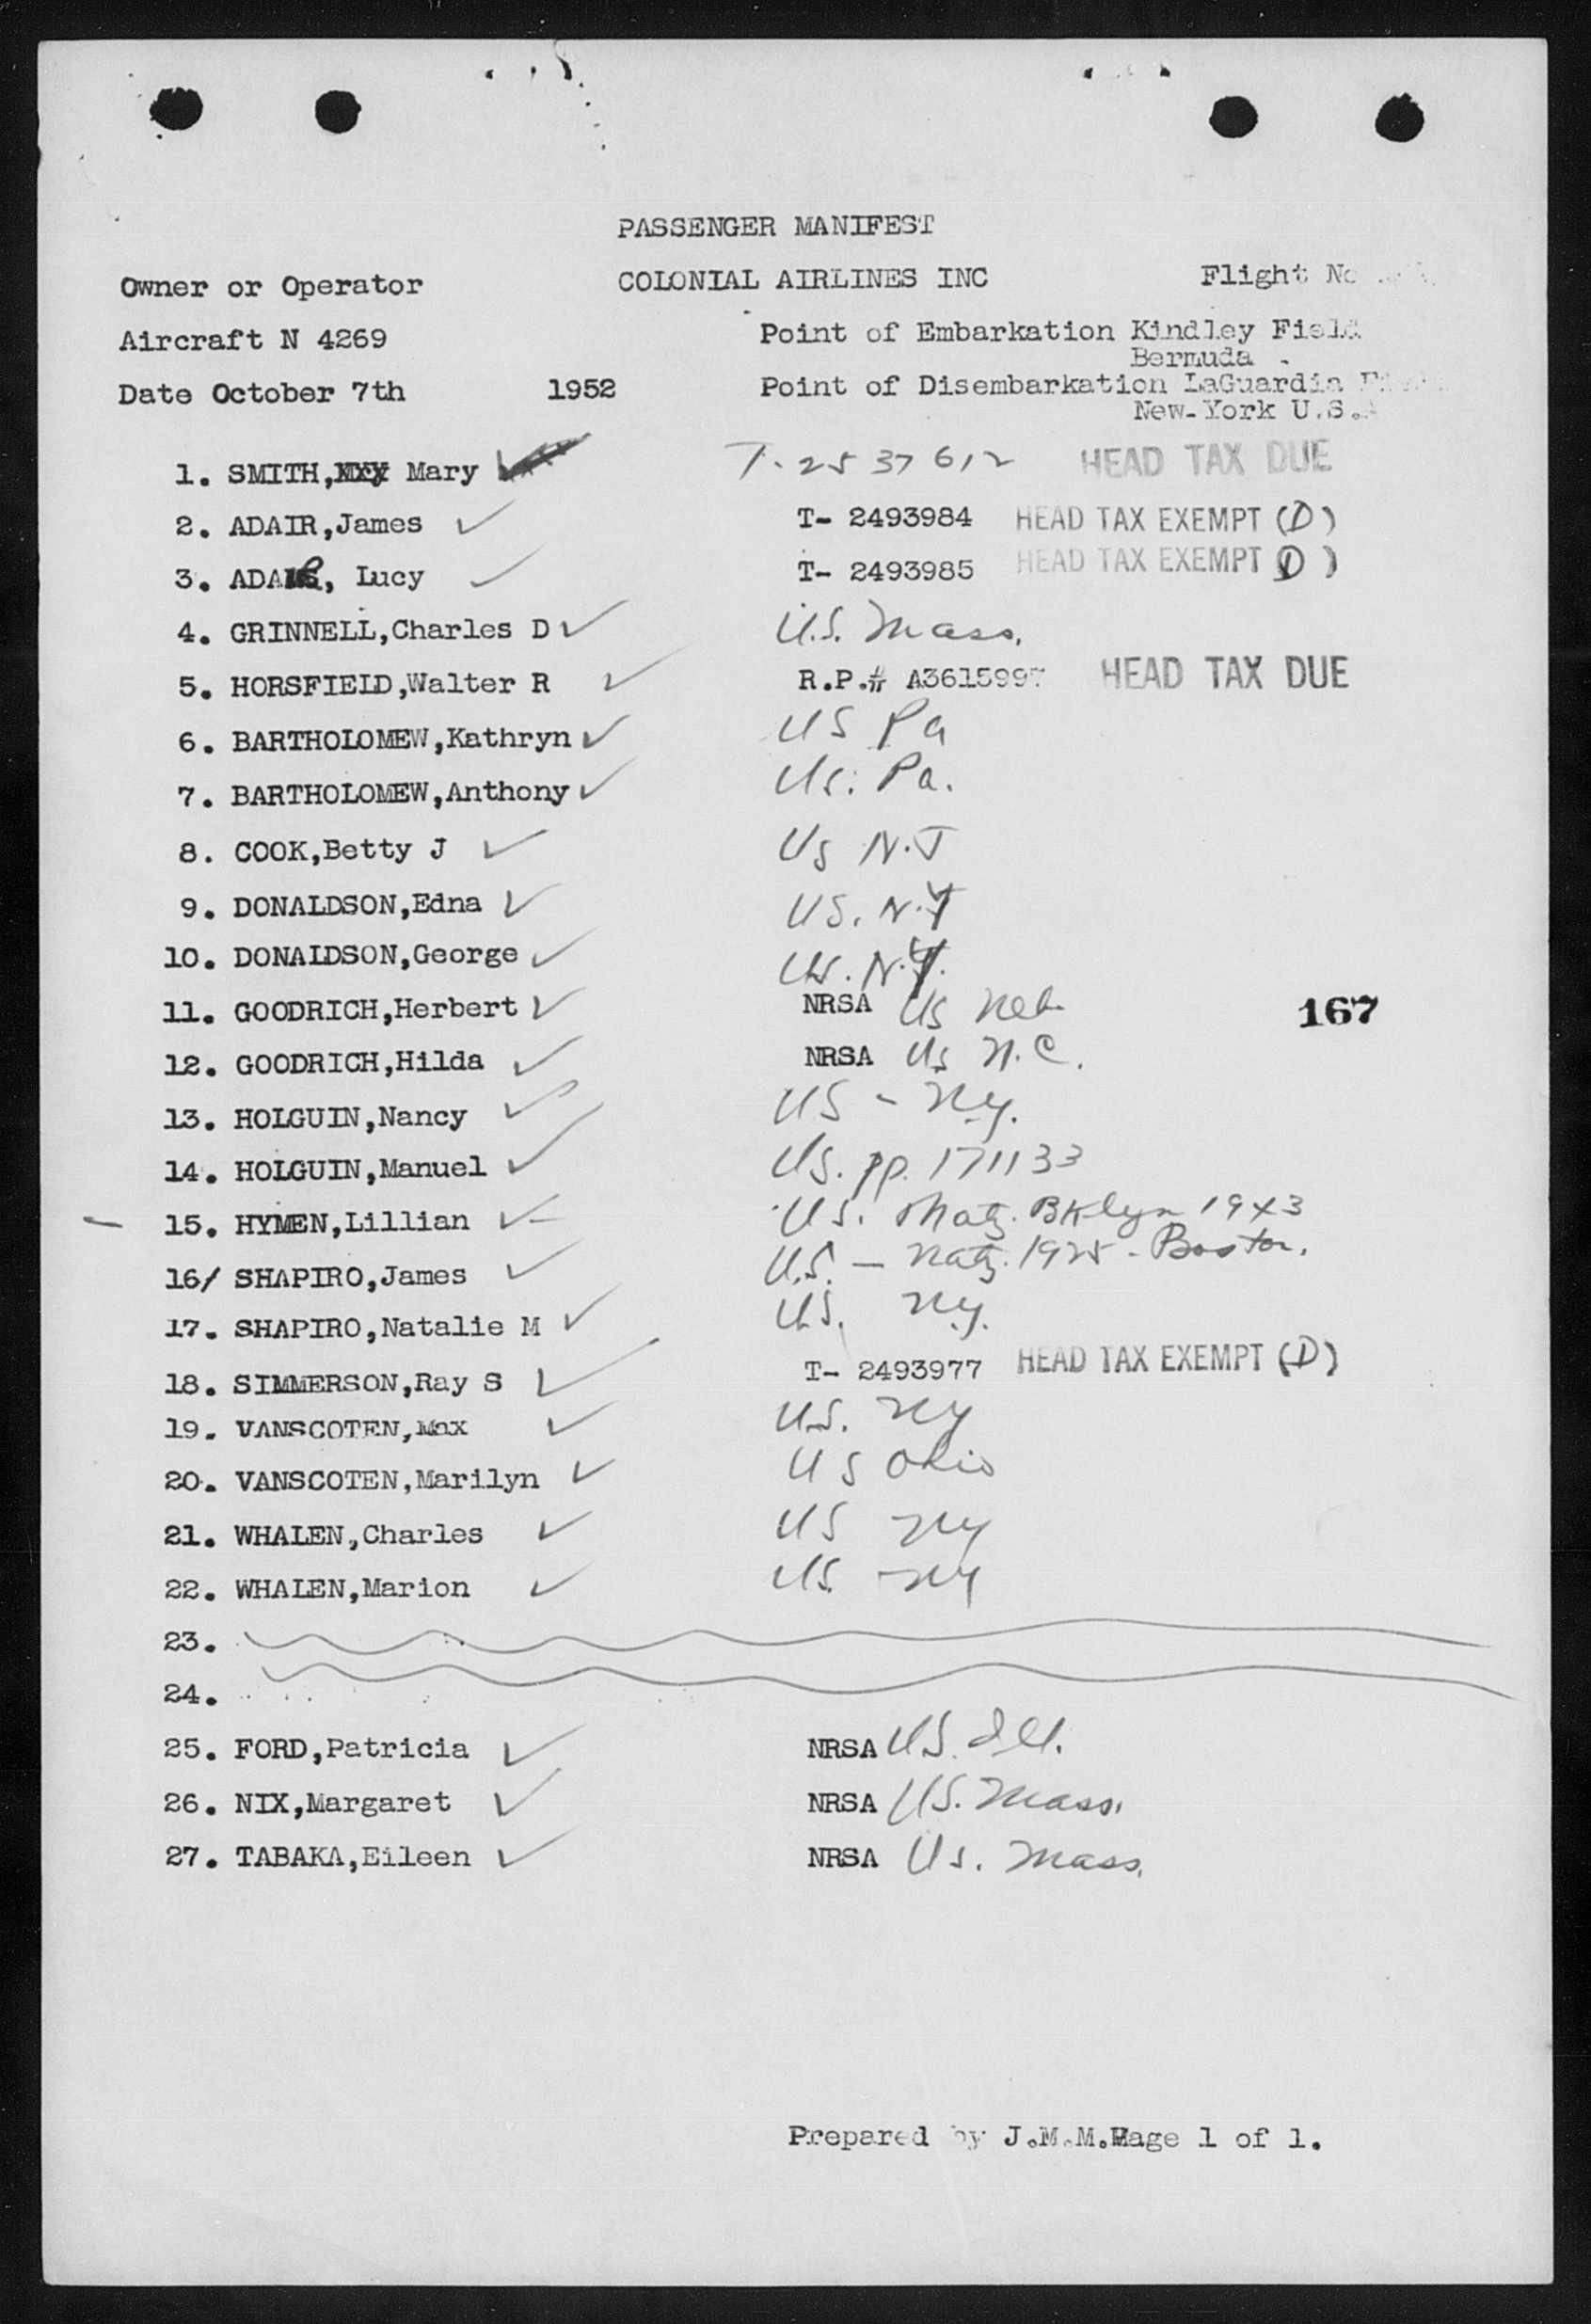 PASSENGER MANIFEST
Owner or Operator COLONIAL AIRLINES INC Flight No
Aircraft N 4269 Point of Embarkation Kindley Field
Bermuda
Date October 7th 1952 Point of Disembarkation LaGuardia
New-York U.S.
1. SMITH, Mary T-2537612 HEAD TAX DUE
2. ADAIR,James T- 2493984 HEAD TAX EXEMPT (D)
3. ADAIR, Lucy T- 2493985 HEAD TAX EXEMPT (D)
4. GRINNELL,Charles D U.S. Mass.
5. HORSFIELD,Walter R R.P.# A3615997 HEAD TAX DUE
6. BARTHOLOMEW,Kathryn US Pa
7. BARTHOLOMEW,Anthony US. Pa.
8. COOK,Betty J US N.J
9. DONALDSON,Edna US. N.Y
10. DONALDSON,George US. N.Y.
11. GOODRICH,Herbert NRSA US Neb 167
12. GOODRICH,Hilda NRSA US N.C.
13. HOLGUIN,Nancy US - N.y.
14. HOLGUIN,Manuel US. pp. 171133
- 15. HYMEN,Lillian US. Natz. BKlyn 1943
16/ SHAPIRO,James U.S. - Natz. 1925 - Boston.
17. SHAPIRO,Natalie M US. N.y.
18. SIMMERSON,Ray S T- 2493977 HEAD TAX EXEMPT (D)
19. VANSCOTEN,Max US. Ny
20. VANSCOTEN,Marilyn US Ohio
21. WHALEN,Charles US Ny
22. WHALEN,Marion US Ny
23.
24.
25. FORD,Patricia NRSA US. Ill.
26. NIX,Margaret NRSA US. Mass.
27. TABAKA,Eileen NRSA US. Mass.
Prepared by J.M.M. Page 1 of 1.